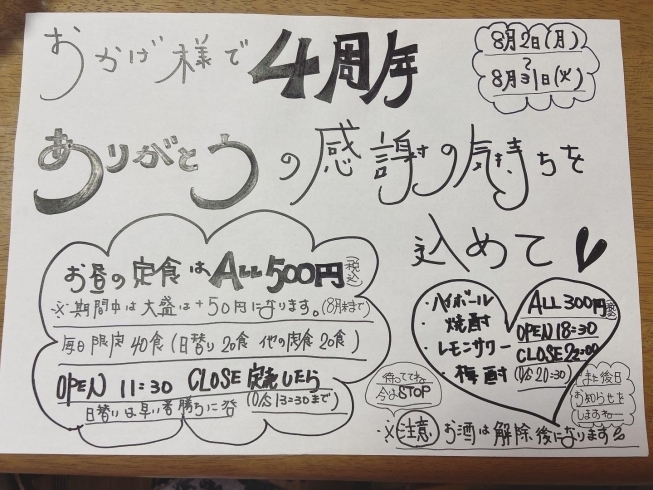 おかげ様で4周年
8月2日(月)
~
8月31日(火)
ありがとうの感謝の気持ちを
込めて
お昼の定食はALL500円(税込)
※期間中は大盛は+50円になります。(8月末まで)
毎日限定40食(日替り20食 他の定食20食)
OPEN 11:30 CLOSE 完売したら
日替りは早い者勝ちに発 (O/S 13:30まで)
・ハイボール
・焼酎
・レモンサワー
・梅酎
ALL 300円
OPEN 18:30
CLOSE 22:00
(O/S 20:30)
待っててね
今はSTOP
また後日
お知らせを
しますねー
※注意 お酒は解除後になります